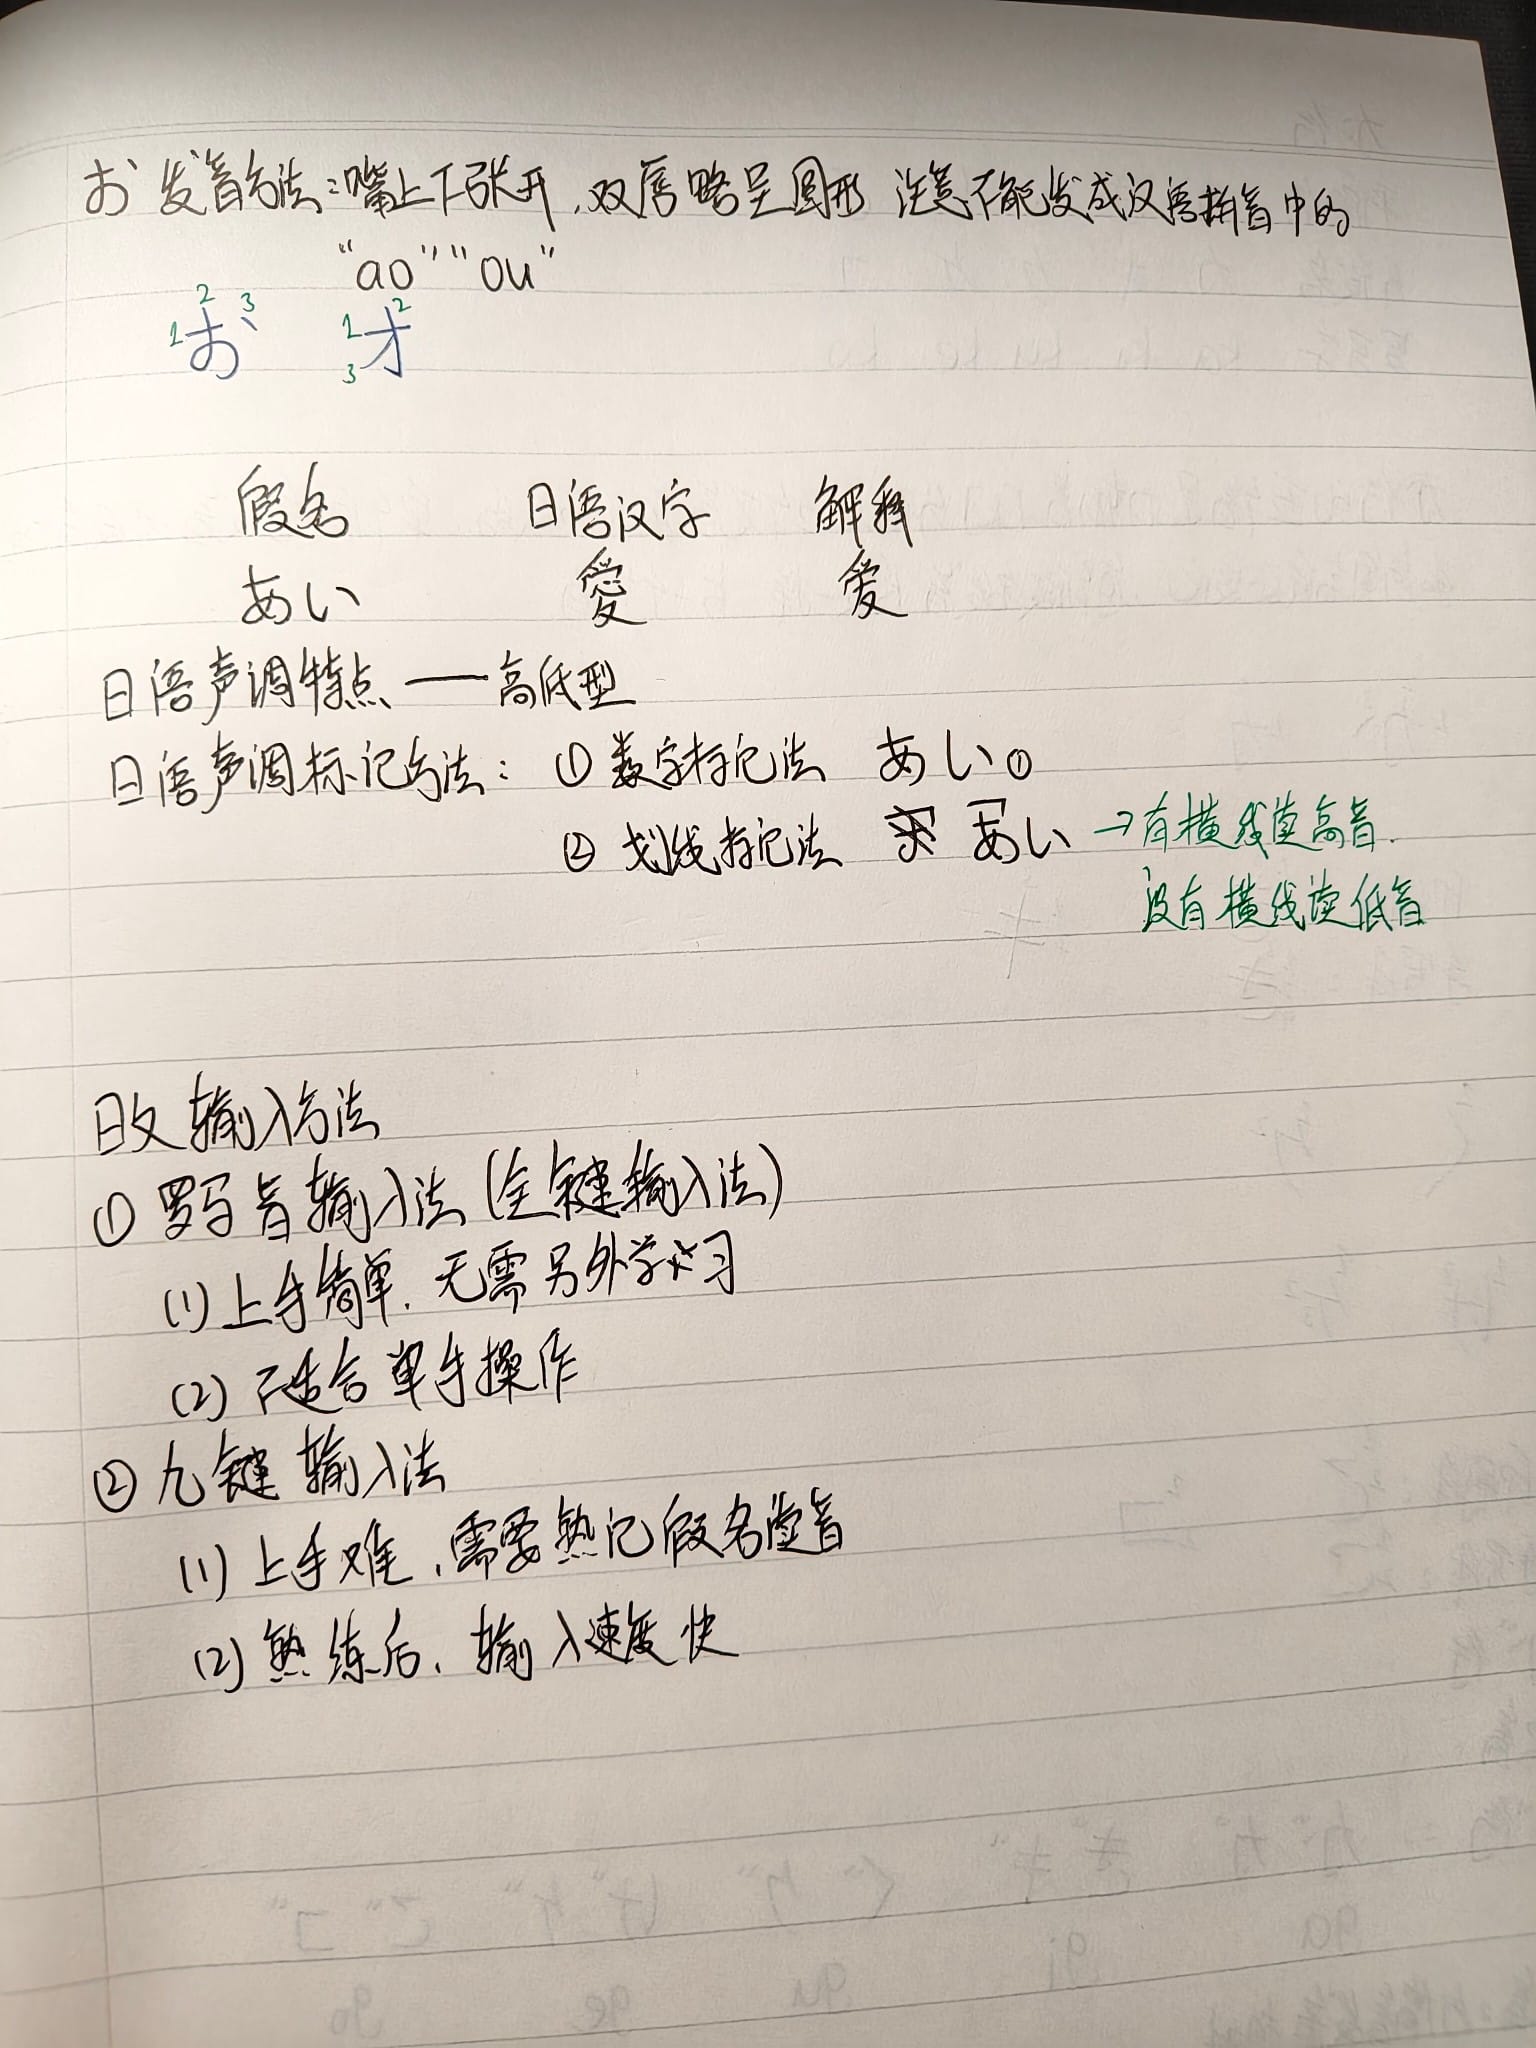 お 发音方法：嘴上下张开，双唇略呈圆形 注意不能发成汉语拼音中的
“ao”“ou”
1 2 3 お 1 2 3 オ
假名 日语汉字 解释
あい 愛 爱
日语声调特点 —— 高低型
日语声调标记方法： ① 数字标记法 あい①
② 划线标记法 あい → 有横线读高音.
没有横线读低音
日文输入方法
① 罗马音输入法 (全键输入法)
(1) 上手简单, 无需另外学习
(2) 不适合单手操作
② 九键输入法
(1) 上手难, 需要熟记假名读音
(2) 熟练后, 输入速度快